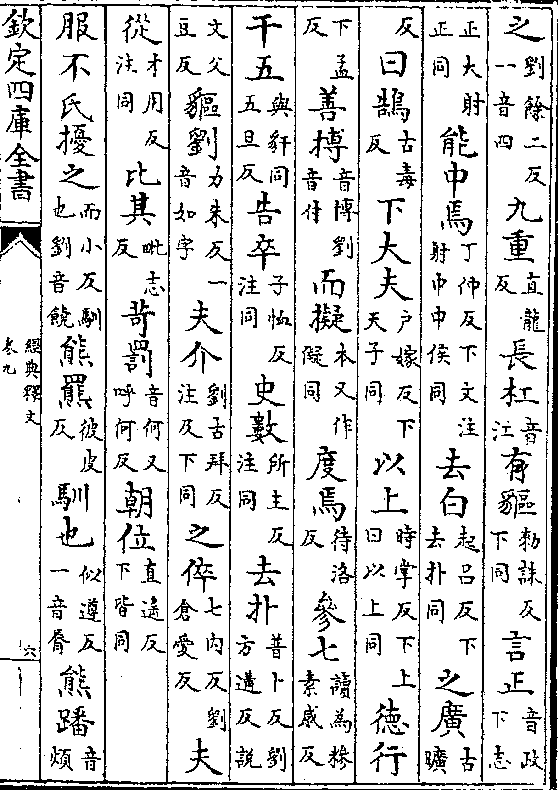 之劉餘二反一音四九重直龍反長杠音江有貙勑誅反下同言正音政下志
正大射正同能中焉丁仲反下文注射中中侯同去白起呂反下去扑同之廣古曠
反曰鵠古毒反下大夫户嫁反下天子同以上時掌反下上曰以上同德行
下孟反善搏音博劉音付而擬本又作儗同度焉待洛反參七讀為糝素感反
干五與豻同五旦反告卒子恤反注同史數所主反注同去扑普卜反劉方遘反説
文父豆反貙劉力朱反一音如字夫介劉古拜反注及下同之倅七内反劉倉愛反夫
從才用反注同比其毗志反苛罰音何又呼何反朝位直遙反下皆同
服不氏擾之而小反馴也劉音饒熊羆彼皮反馴也似遵反一音脣熊蹯音煩
欽定四庫全書
經典釋文
卷九
六